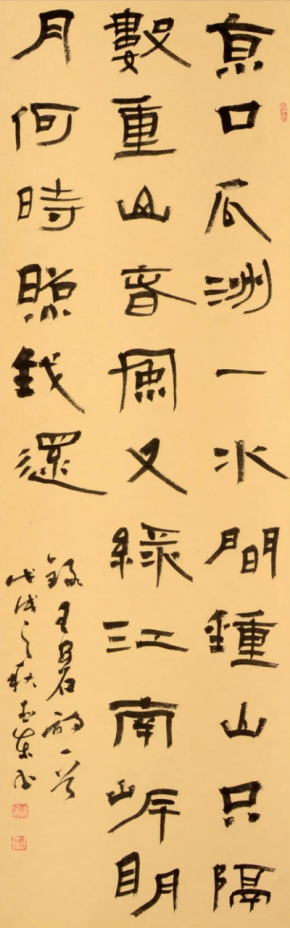 京口瓜洲一水間鍾山只隔
數重山春風又綠江南岸明
月何時照我還
錄王安石詩一首
戊戌之秋